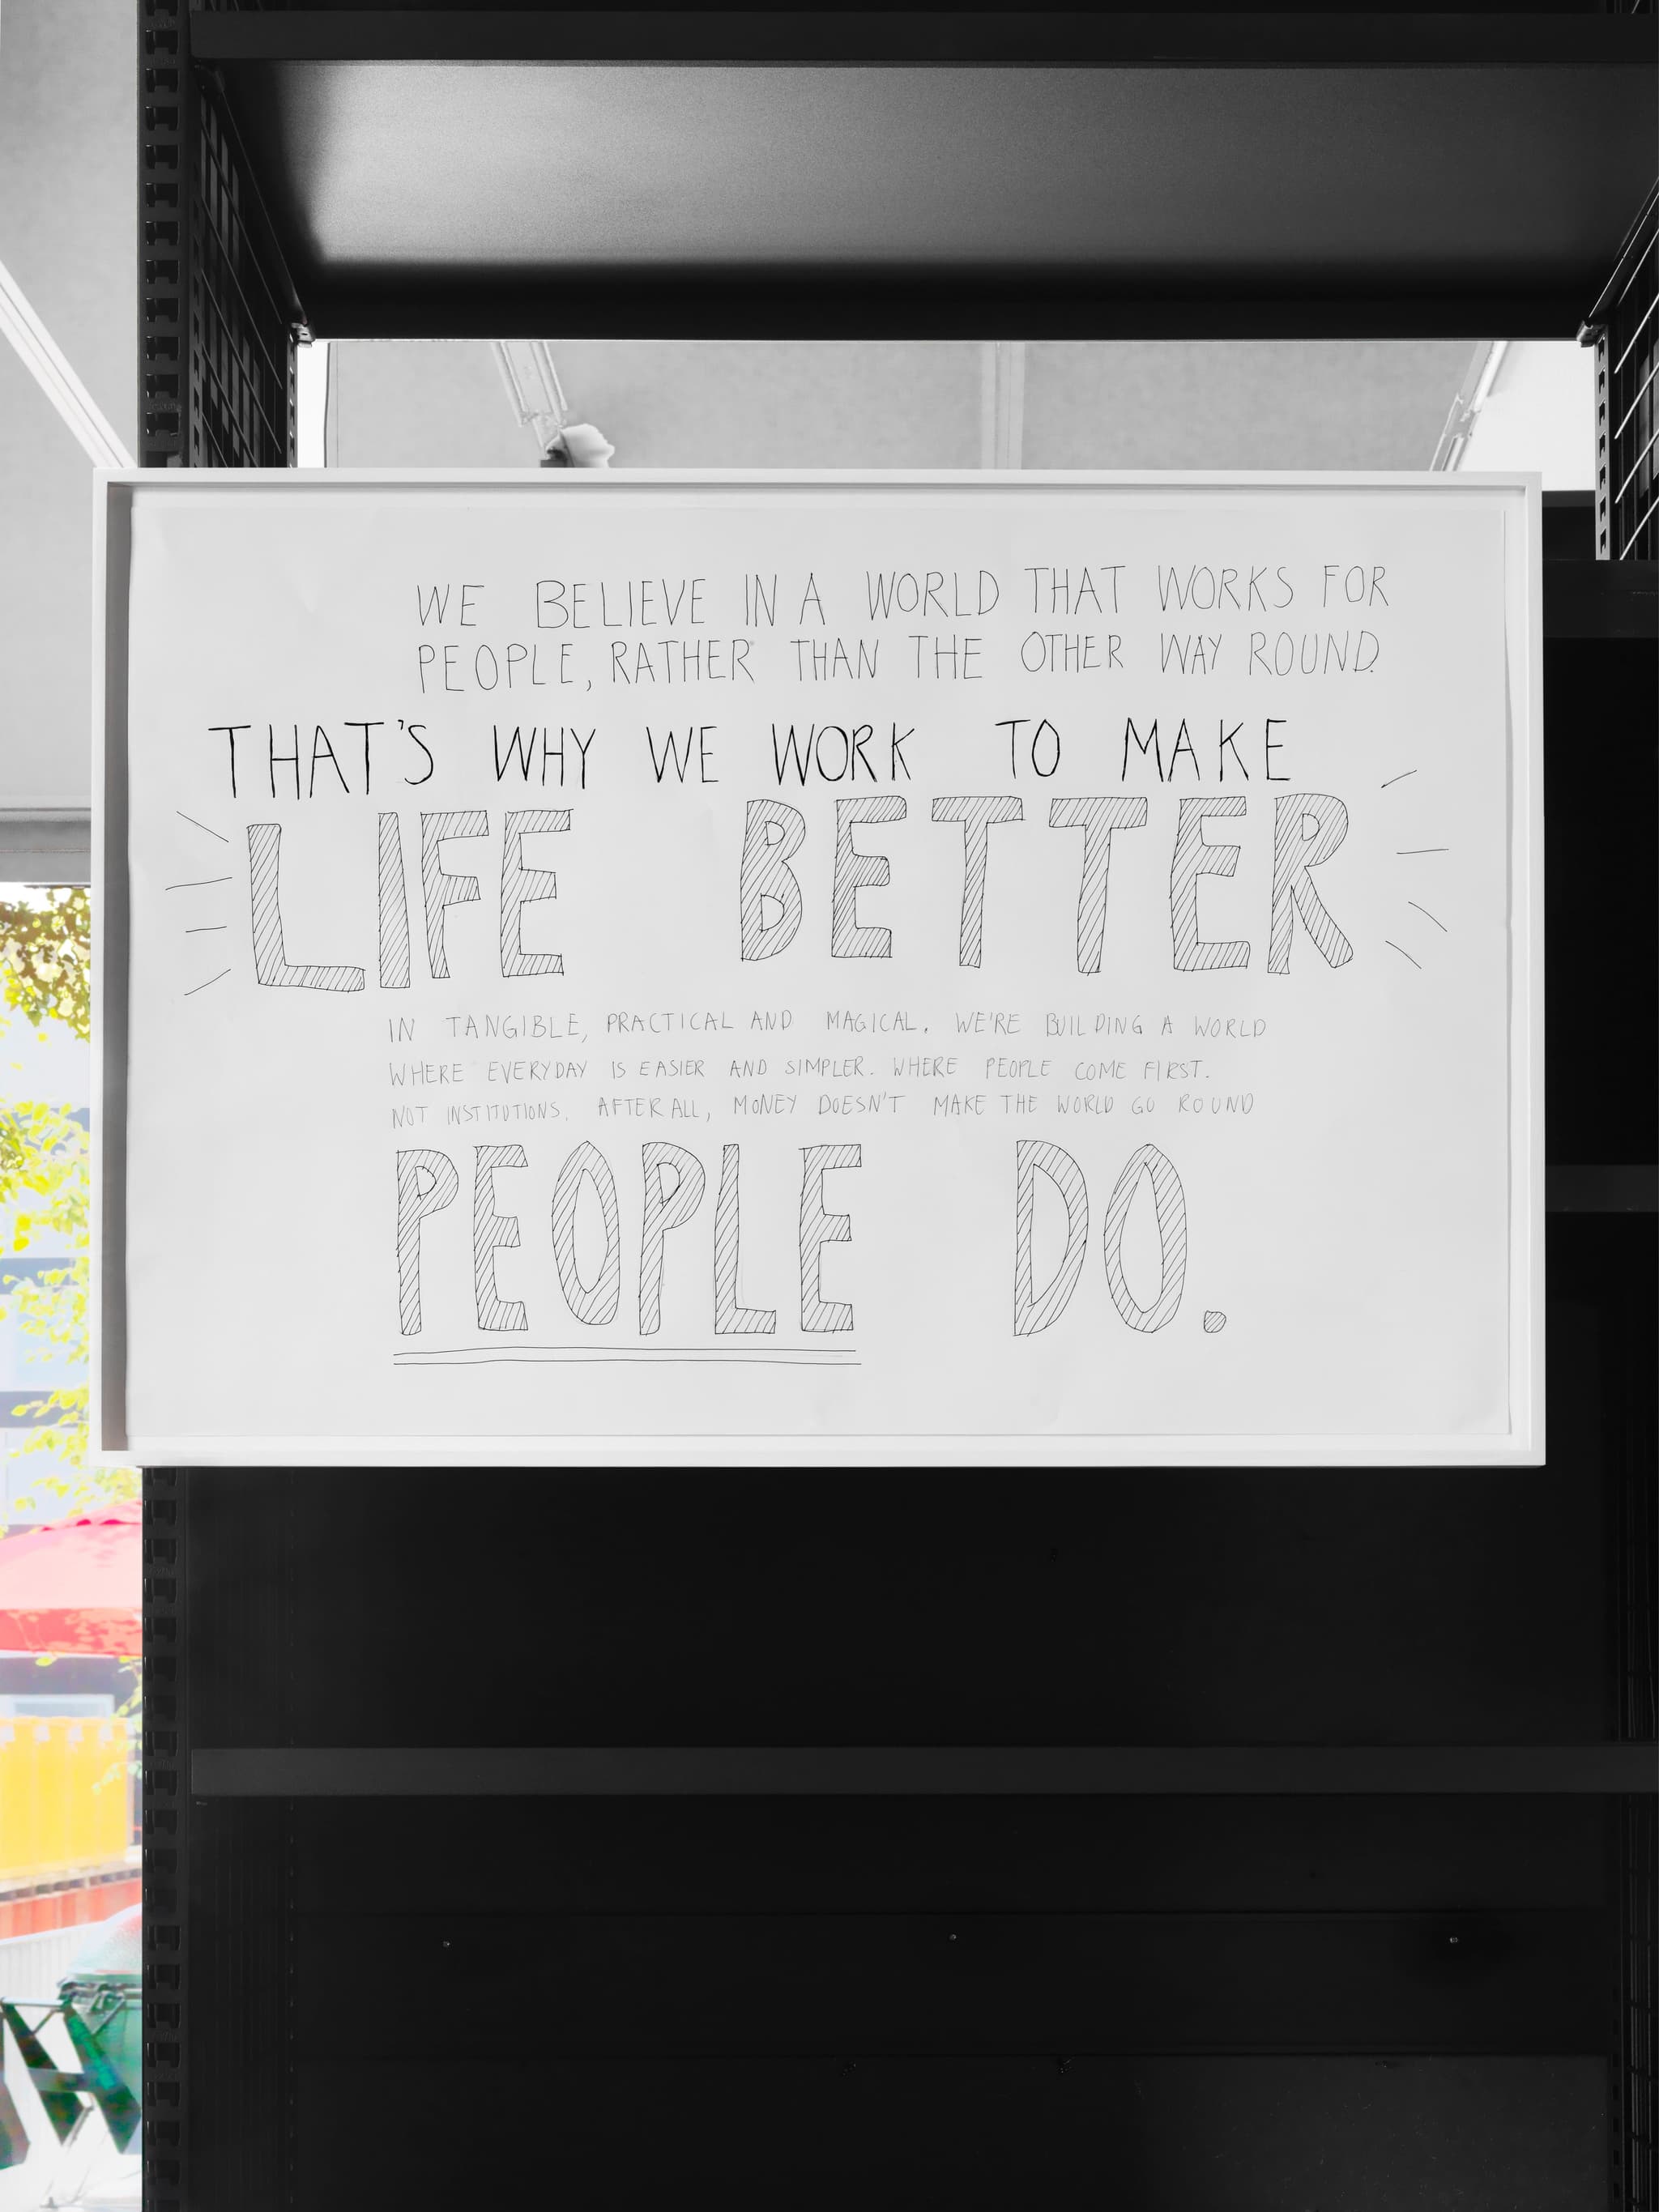 WE BELIEVE IN A WORLD THAT WORKS FOR
PEOPLE, RATHER THAN THE OTHER WAY ROUND.
THAT'S WHY WE WORK TO MAKE
LIFE BETTER
IN TANGIBLE, PRACTICAL AND MAGICAL. WE'RE BUILDING A WORLD
WHERE EVERYDAY IS EASIER AND SIMPLER. WHERE PEOPLE COME FIRST.
NOT INSTITUTIONS. AFTER ALL, MONEY DOESN'T MAKE THE WORLD GO ROUND
PEOPLE DO.